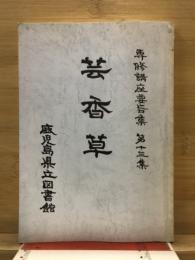 専修講座要旨集 第十三集
芸香草
鹿児島県立図書館